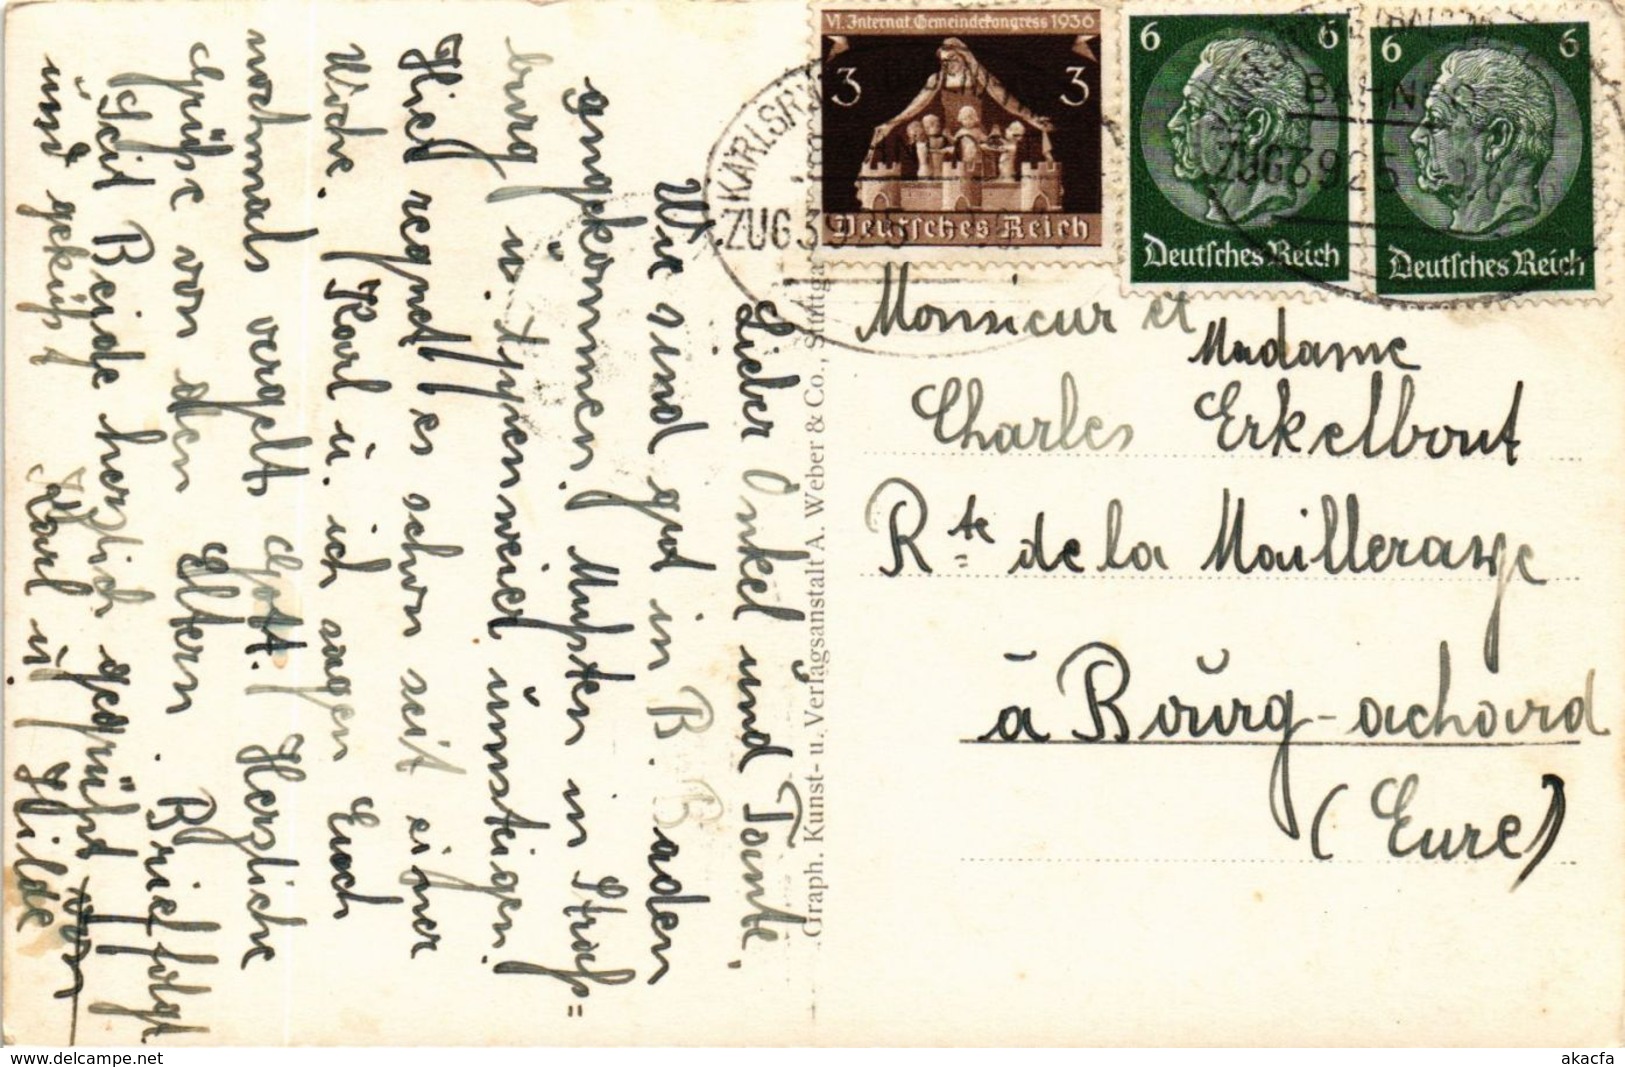 VI. Internat. Gemeindekongress 1936
3 3
Deutsches Reich
6 6
Deutsches Reich
6 6
Deutsches Reich
ZUG 3925
BAHNPO
ZUG 3925
Monsieur et
Madame
Charles Erkelbout
Rte de la Mailleraye
à Bourg-achard
(Eure)
Graph. Kunst- u. Verlagsanstalt A. Weber & Co., Stuttga
Lieber Onkel und Tante,
Wir sind gut in B. Baden
angekommen. Mußten in Straß=
burg u. Appenweier umsteigen.
Hier regnet es schon seit einer
Woche. Karl u. ich sagen Euch
nochmals vergelts Gott. Herzliche
Grüße von den Eltern. Brief folgt
Seit Beide herzlich gegrüßt von
und geküßt Karl u. Hilde
www.delcampe.net
akacfa